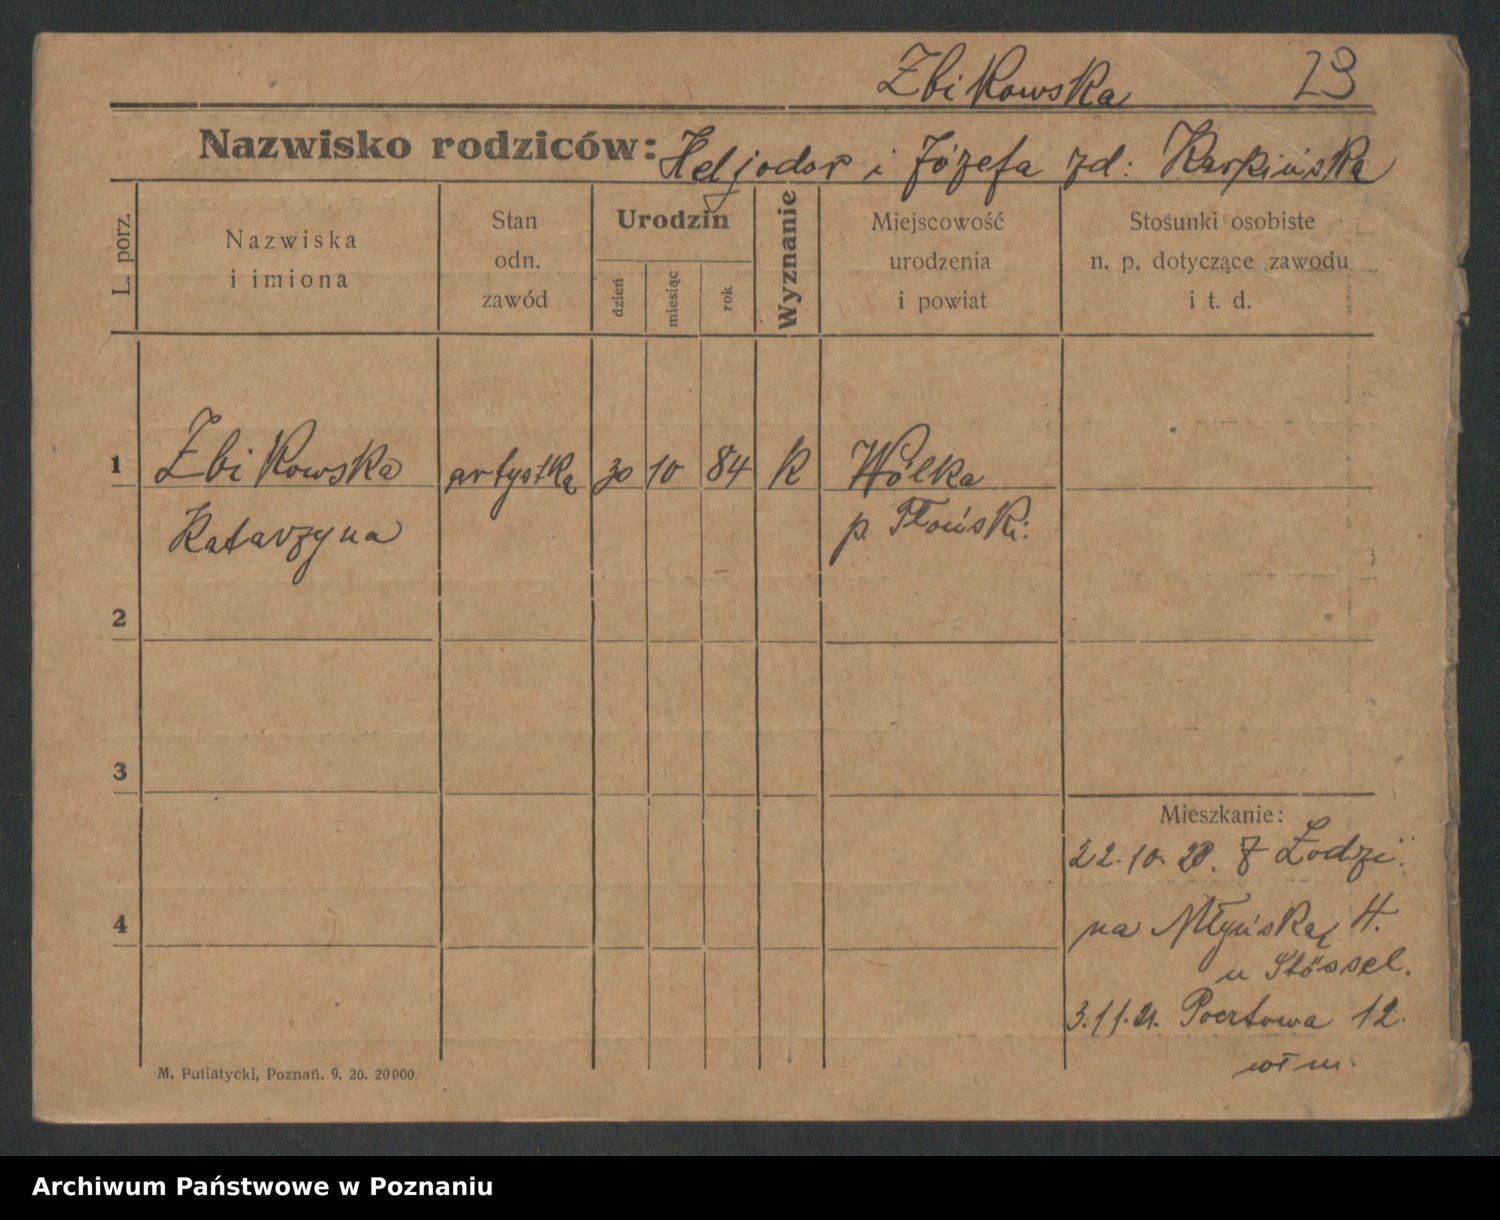 Zbikowska 23
Nazwisko rodziców: Heljodor i Józefa zd: Karpińska
L. porz.
Nazwiska
i imiona
Stan
odn.
zawód
Urodzin
dzień
miesiąc
rok
Wyznanie
Miejscowość
urodzenia
i powiat
Stosunki osobiste
n. p. dotyczące zawodu
i t. d.
1 Zbikowska artystka 30 10 84 K Wólka
Katarzyna p. Płoński:
2
3
4
Mieszkanie:
22.10.20. z Łodzi
na Młyńską 4.
u Stössel.
3.11.21. Pocztowa 12.
wł m.
M. Putiatycki, Poznań. 9. 20. 20000.
Archiwum Państwowe w Poznaniu